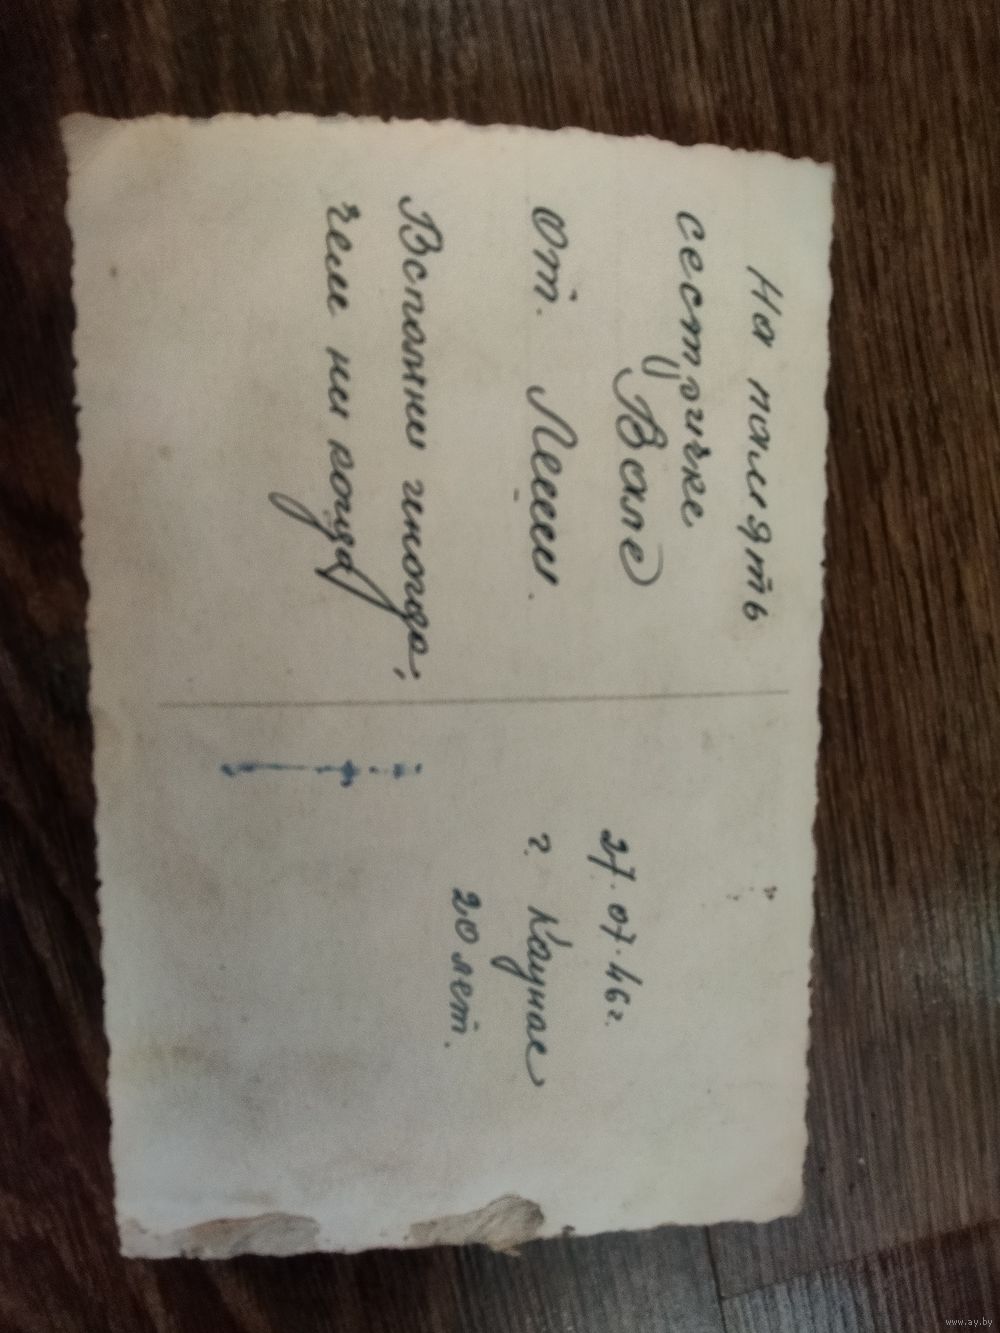 На память
сестричке
Вале
от Лёши.
Вспомни иногда,
чем ни когда
27.07.46 г.
г. Каунас
20 лет.
www.ay.by